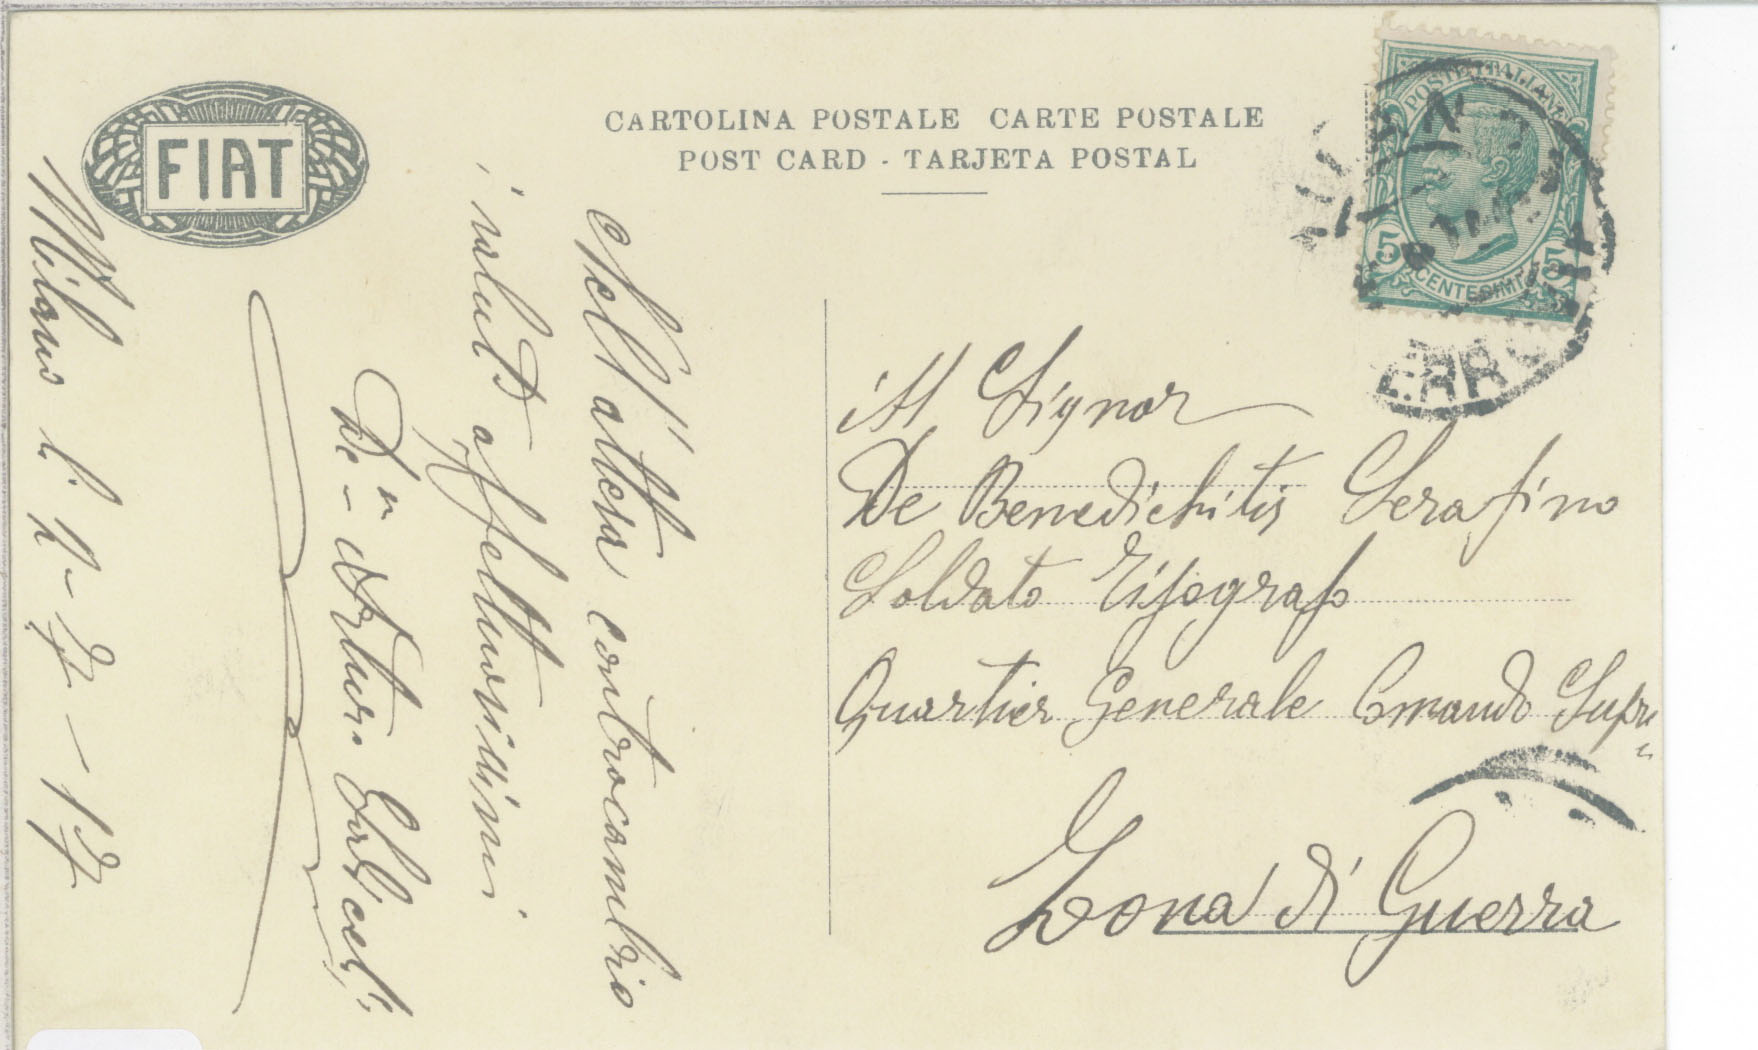 FIAT
CARTOLINA POSTALE CARTE POSTALE
POST CARD - TARJETA POSTAL
POSTE ITALIANE
5 CENTESIMI 5
FERROVIA
Milano li 2-7-17
Nell'attesa controcambio
i saluti affettuosissimi
De
il Signor
De Benedichitis Serafino
Soldato Tipografo
Quartier Generale Comando Supre
Zona di Guerra